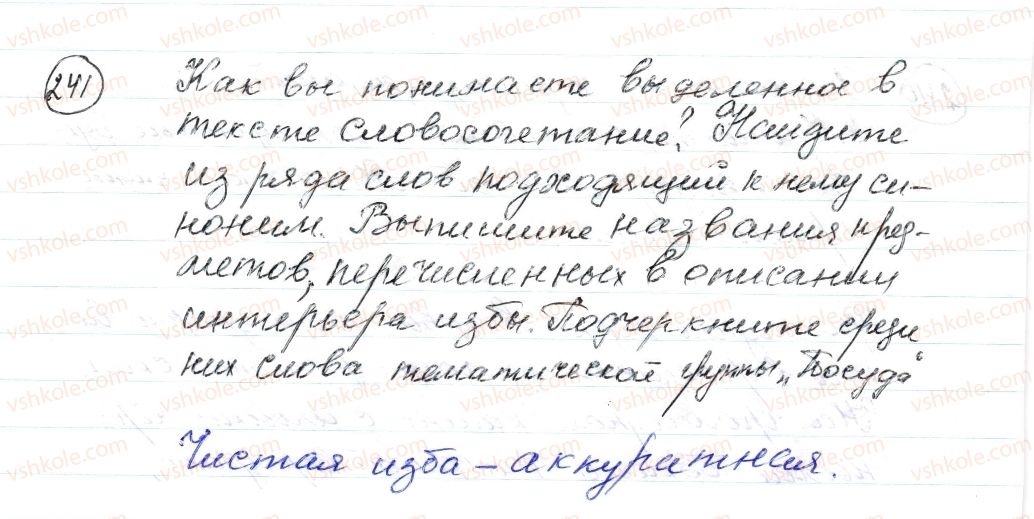 241 Как вы понимаете выделенное в
тексте словосочетание? Найдите
из ряда слов подходящий к нему си-
ноним. Выпишите названия пред-
метов, перечисленных в описании
интерьера избы. Подчеркните среди
них слова тематической группы „Посуда“
Чистая изба – аккуратная.